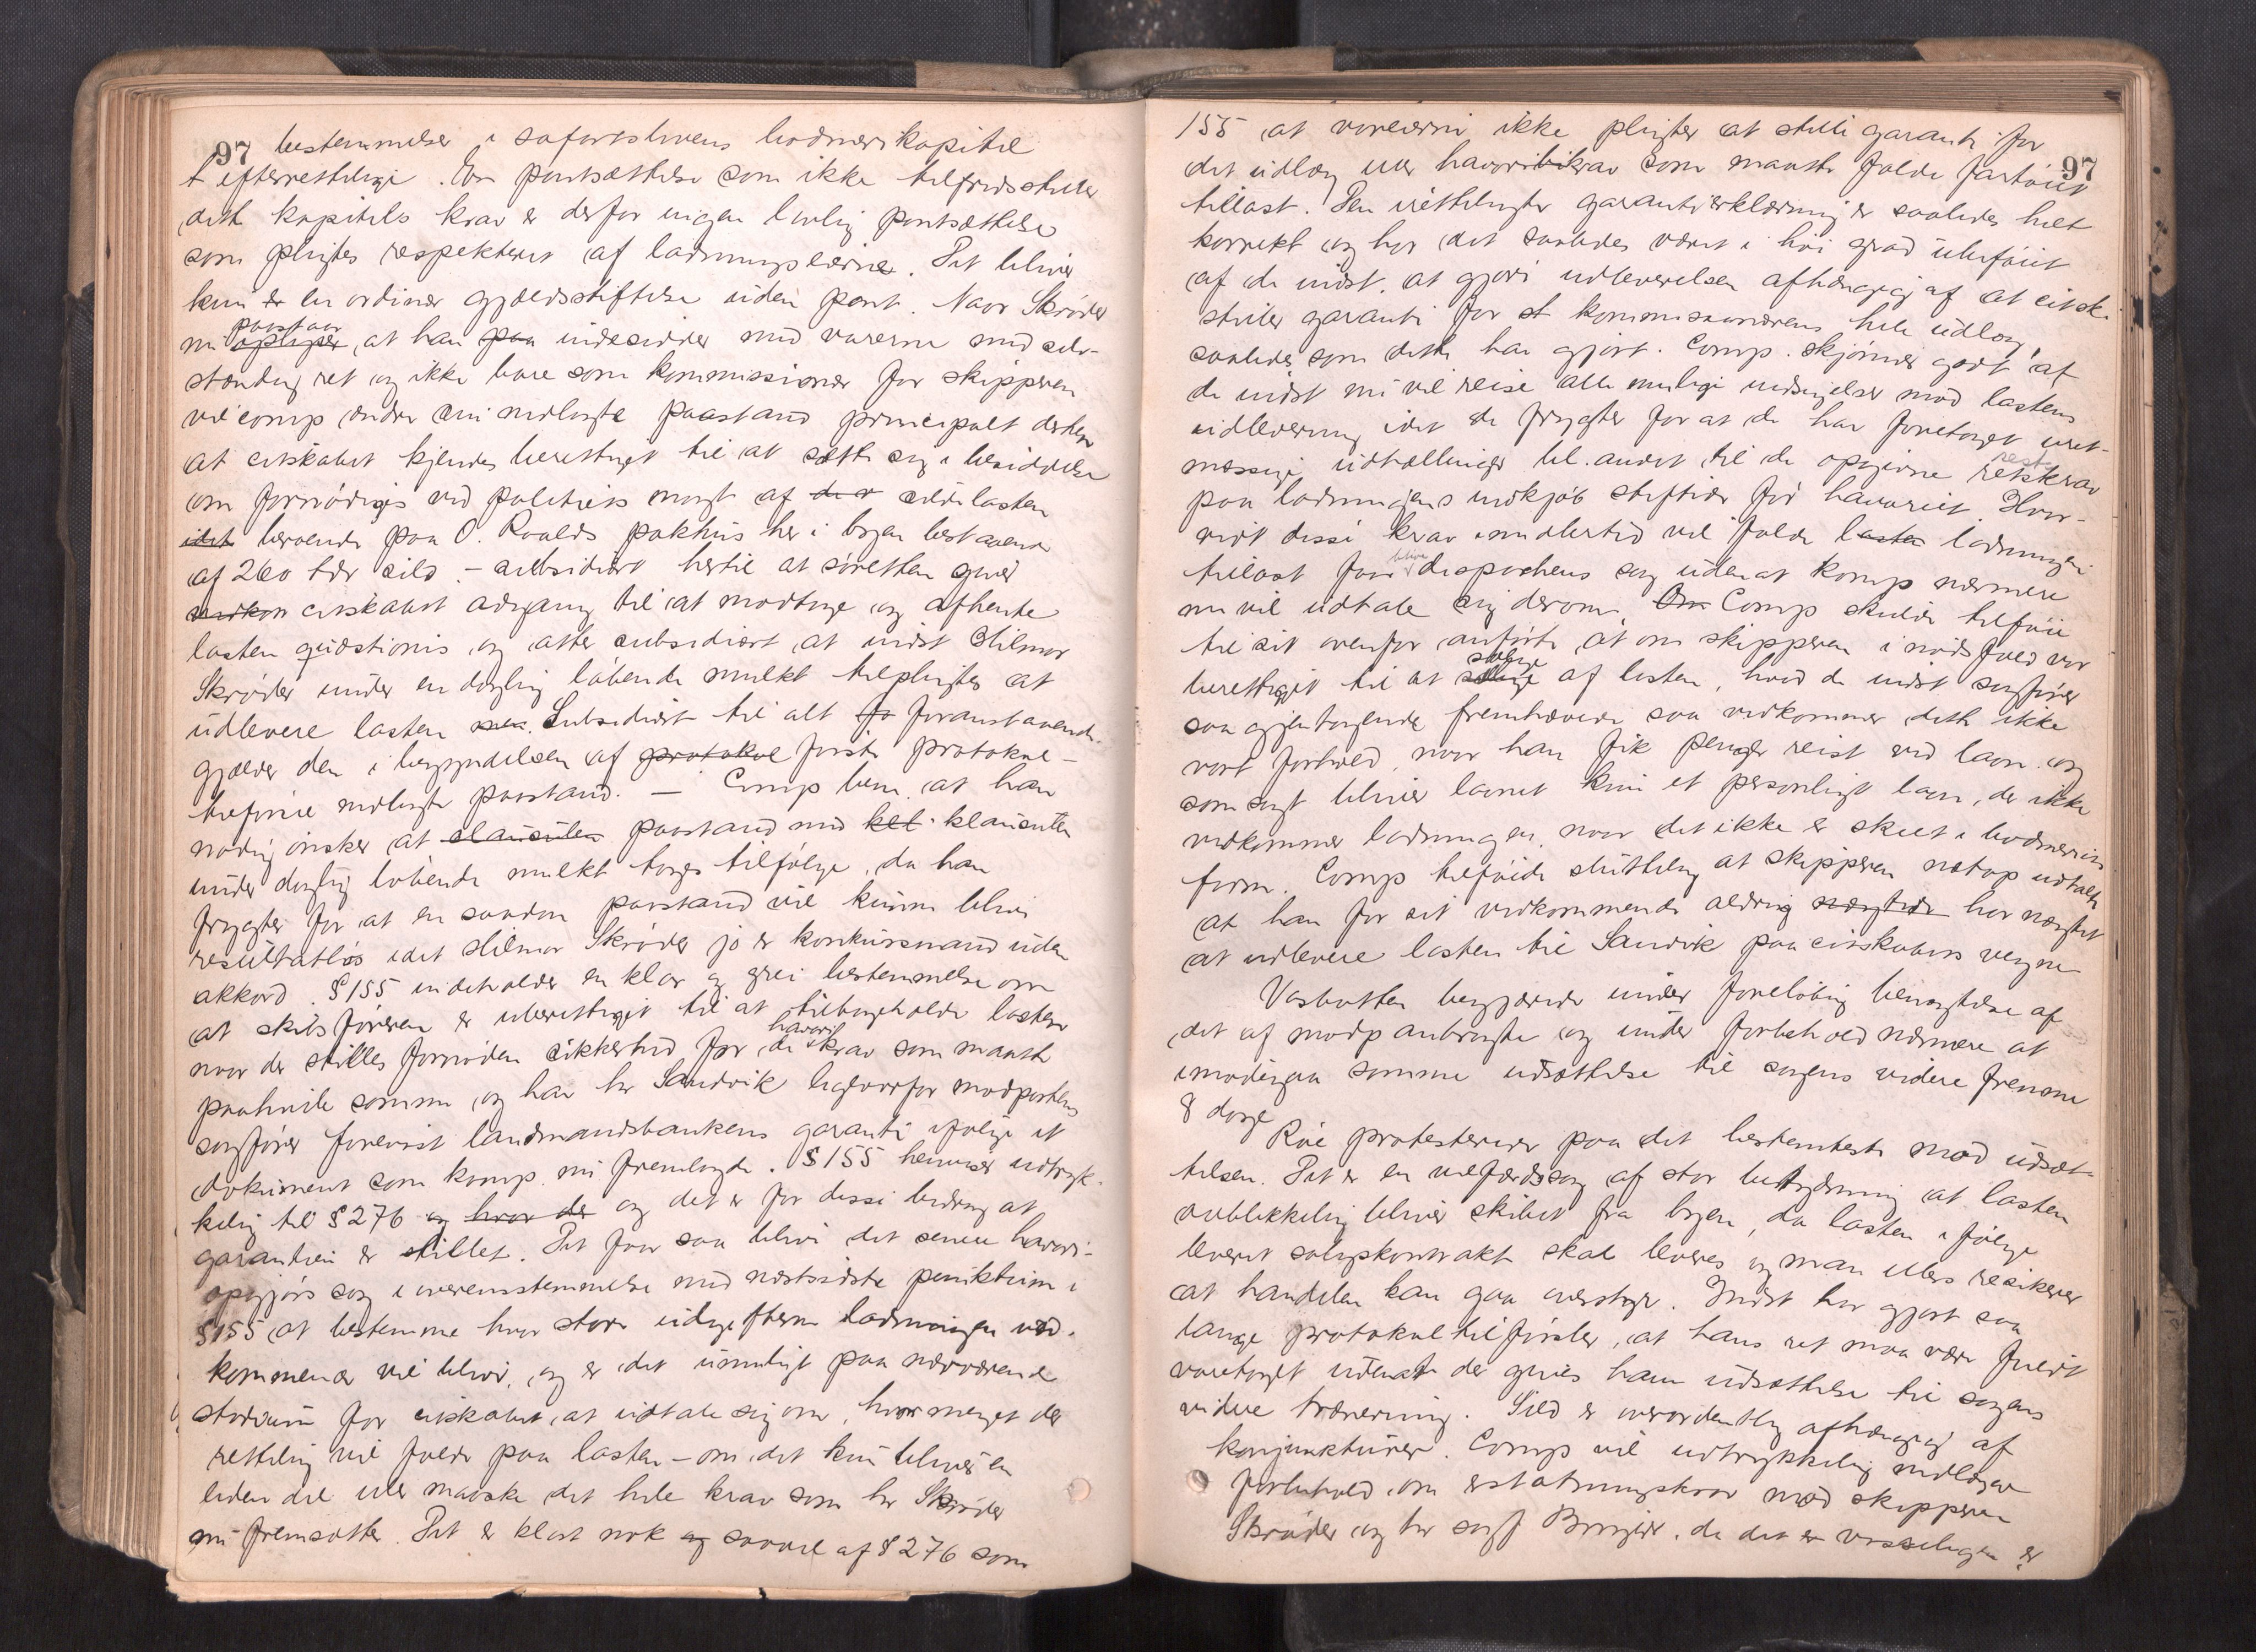 97
bestemmelser i søfartslovens bodmerikapitel
t efterrettelige. En pantsættelse som ikke tilfredsstiller
dette kapitels krav er derfor ingen lovlig pantsættelse
som pligtes respekteret af ladningseierne. Det bliver
kun er en ordinær gjældsstiftelse uden pant. Naar Skrøder
paastaar
nu opligser at han paa indesidder med varerne med selv-
stændig ret og ikke bare som kommissionær for skipperen
vil comp ændre sin nedlagte paastand principalt derhen
at citskabet kjendes berettiget til at sætte sig i besiddelse
om fornødiges ved politiets magt af den sildelasten
idet beroende paa O. Roalds pakhus her i byen bestaaende
af 260 tdr sild - subsidiært hertil at søretten giver
citskabet adgang til at modtage og afhente
lasten quæstionis og atter subsidiært at indst Hilmar
Skrøder under en daglig løbende mulkt tilpligtes at
udlevere lasten Subsidiært til alt fo foranstaaende
gjælder den i begyndelsen af protokol første protokol-
tilførsel nedlagte paastand. - Comp bem. at han
nødig ønsker at clausulen paastand med kla klausulen
under daglig løbende mulkt tages tilfølge, da han
frygter for at en saadan paastand vil kunne blive
resultatløs idet Hilmar Skrøder jo er konkursmand uden
akkord. § 155 indeholder en klar og grei bestemmelse om
at skibsføreren er uberettiget til at tilbageholde lasten
havari
naar der stilles fornøden sikkerhed for de krav som maatte
paahvile samme og har hr Sandvik ligeoverfor modpartens
sagfører forevist landmandsbankens garanti ifølge et
dokument som komp. nu fremlagde. § 155 henviser udtryk-
kelig til § 276 og hvor der og det er for dessi bidrag at
garantien er stillet. Det faar saa blive det senere havari-
opgjørs sag i overensstemmelse med næstsidste punktum i
§ 155 at bestemme hvor store udgifterne ladningen ved-
kommende vil blive, og er det umuligt paa nærværende
stadium for citskabet at udtale sig om, hvor meget der
rettelig vil falde paa lasten - om det kun bliver en
liden del eller maaske det hele krav som hr Skrøder
nu fremsætter. Det er klart nok og saavel af § 276 som
97
155 at vareeierne ikke pligter at stille garanti for
det udlæg eller havarikrav som maatte falde fartøiet
tillast. Den irettelagte garantierklæring er saaledes helt
korrekt og har det saaledes været i høi grad ubeføiet
af de indst. at gjøre udleverelsen afhængig af at citsk.
stiller garanti for st kommissionærens hele udlæg,
saaledes som dette har gjort. Comp. skjønner godt at
de indst nu vil reise alle mulige indsigelser mod lastens
udlevering idet de frygter for at de har foretaget uret-
mæssige udtællinger bl. andet til de opgivne
rest
restkrav
paa ladningens indkjøb stiftede før havariet. Hvor-
vidt dissi krav imidlertid vil falde lasten ladningen
blive
tillast faar dispachens sag uden at komp nærmere
nu vil udtale sig derom. Om Comp skulde tilføie
til sit ovenfor anførte at om skipperen i nødsfald var
sælge
berettiget til at sælge af lasten, hvad de indst sagfører
saa gjentagende fremhævede saa vedkommer dette ikke
vort forhold, naar han fik penger reist ved laan. og
som sagt bliver laanet kun et personligt laan, der ikke
vedkommer ladningen, naar det ikke er skeet i bodmeriets
form. Comp tilføide sluttelig at skipperen netop udtalte
at han for sit vedkommende aldrig nægtede har nægtet
at udlevere lasten til Sandvik paa citskabets vegne
Vasbotten begjærede under foreløbig benægtelse af
det af modp anbragte og under forbehold nærmere at
imødegaa samme udsættelse til sagens videre fremme
8 dage
Roe protesterede paa det bestemteste mod udsæt-
telsen. Det er en velfærdssag af stor betydning at lasten
øieblikkelig bliver skibet fra byen, da lasten ifølge
leveret salgskontrakt skal leveres og man ellers resikerer
at handelen kan gaa overstyr. Indst har gjort saa
lange protokoltilførsler, at hans ret maa være fuldt
varetaget uden at der gives ham udsættelse til sagens
videre trænering. Sild er overordentlig afhængig af
konjunkturer. Comp vil udtrykkelig nedlægge
forbehold om erstatningskrav mod skipperen
Skrøder og hr sagf , da det er visselig er